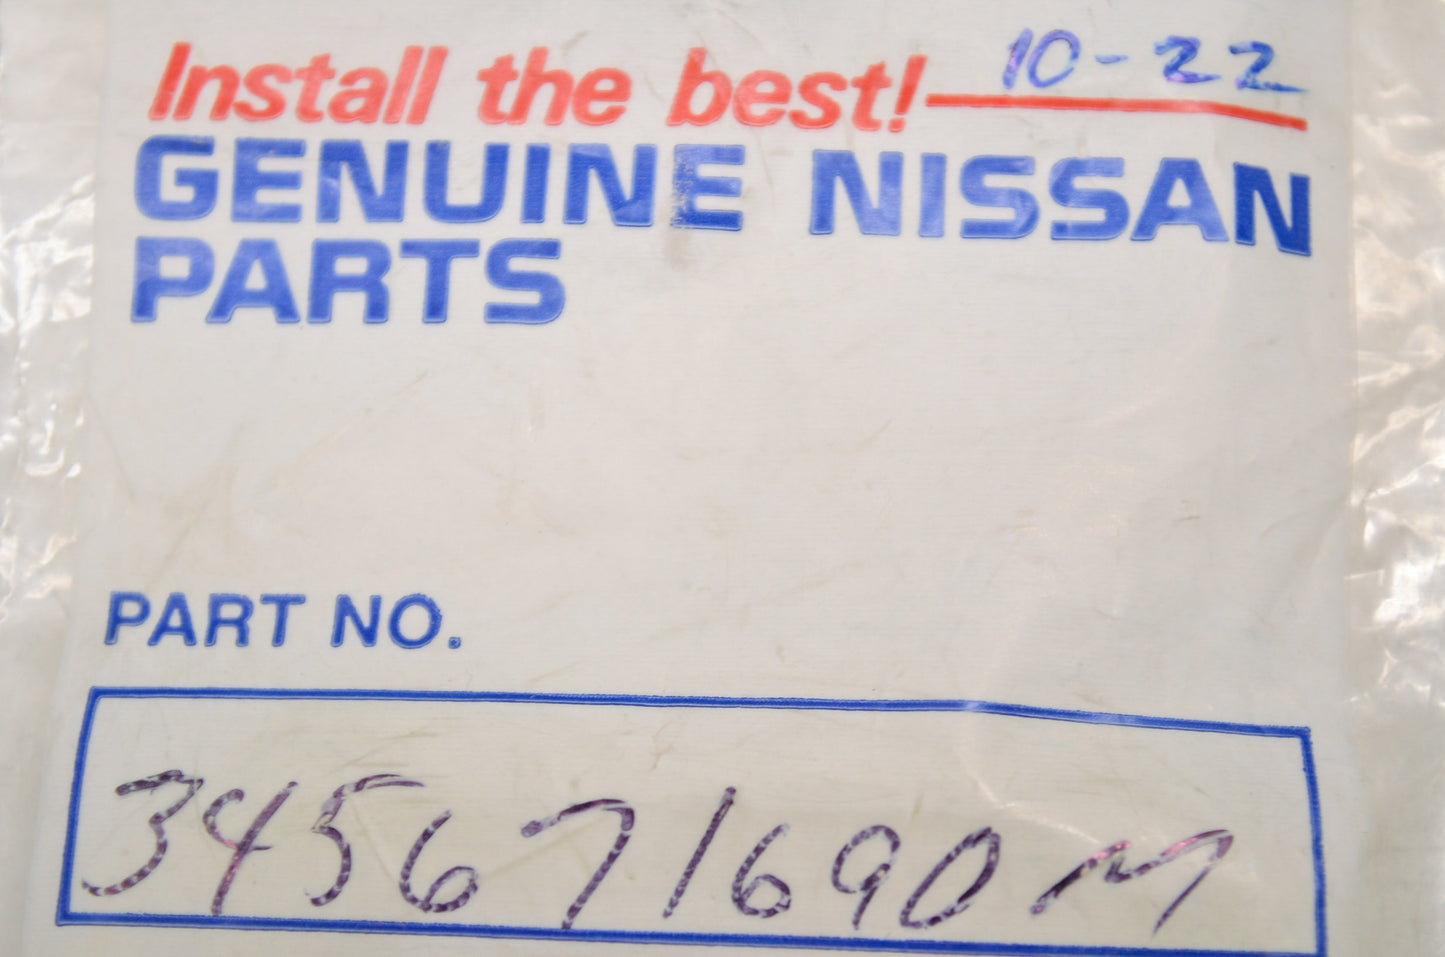 Install the best! 10-22
GENUINE NISSAN
PARTS
PART NO.
345671690M